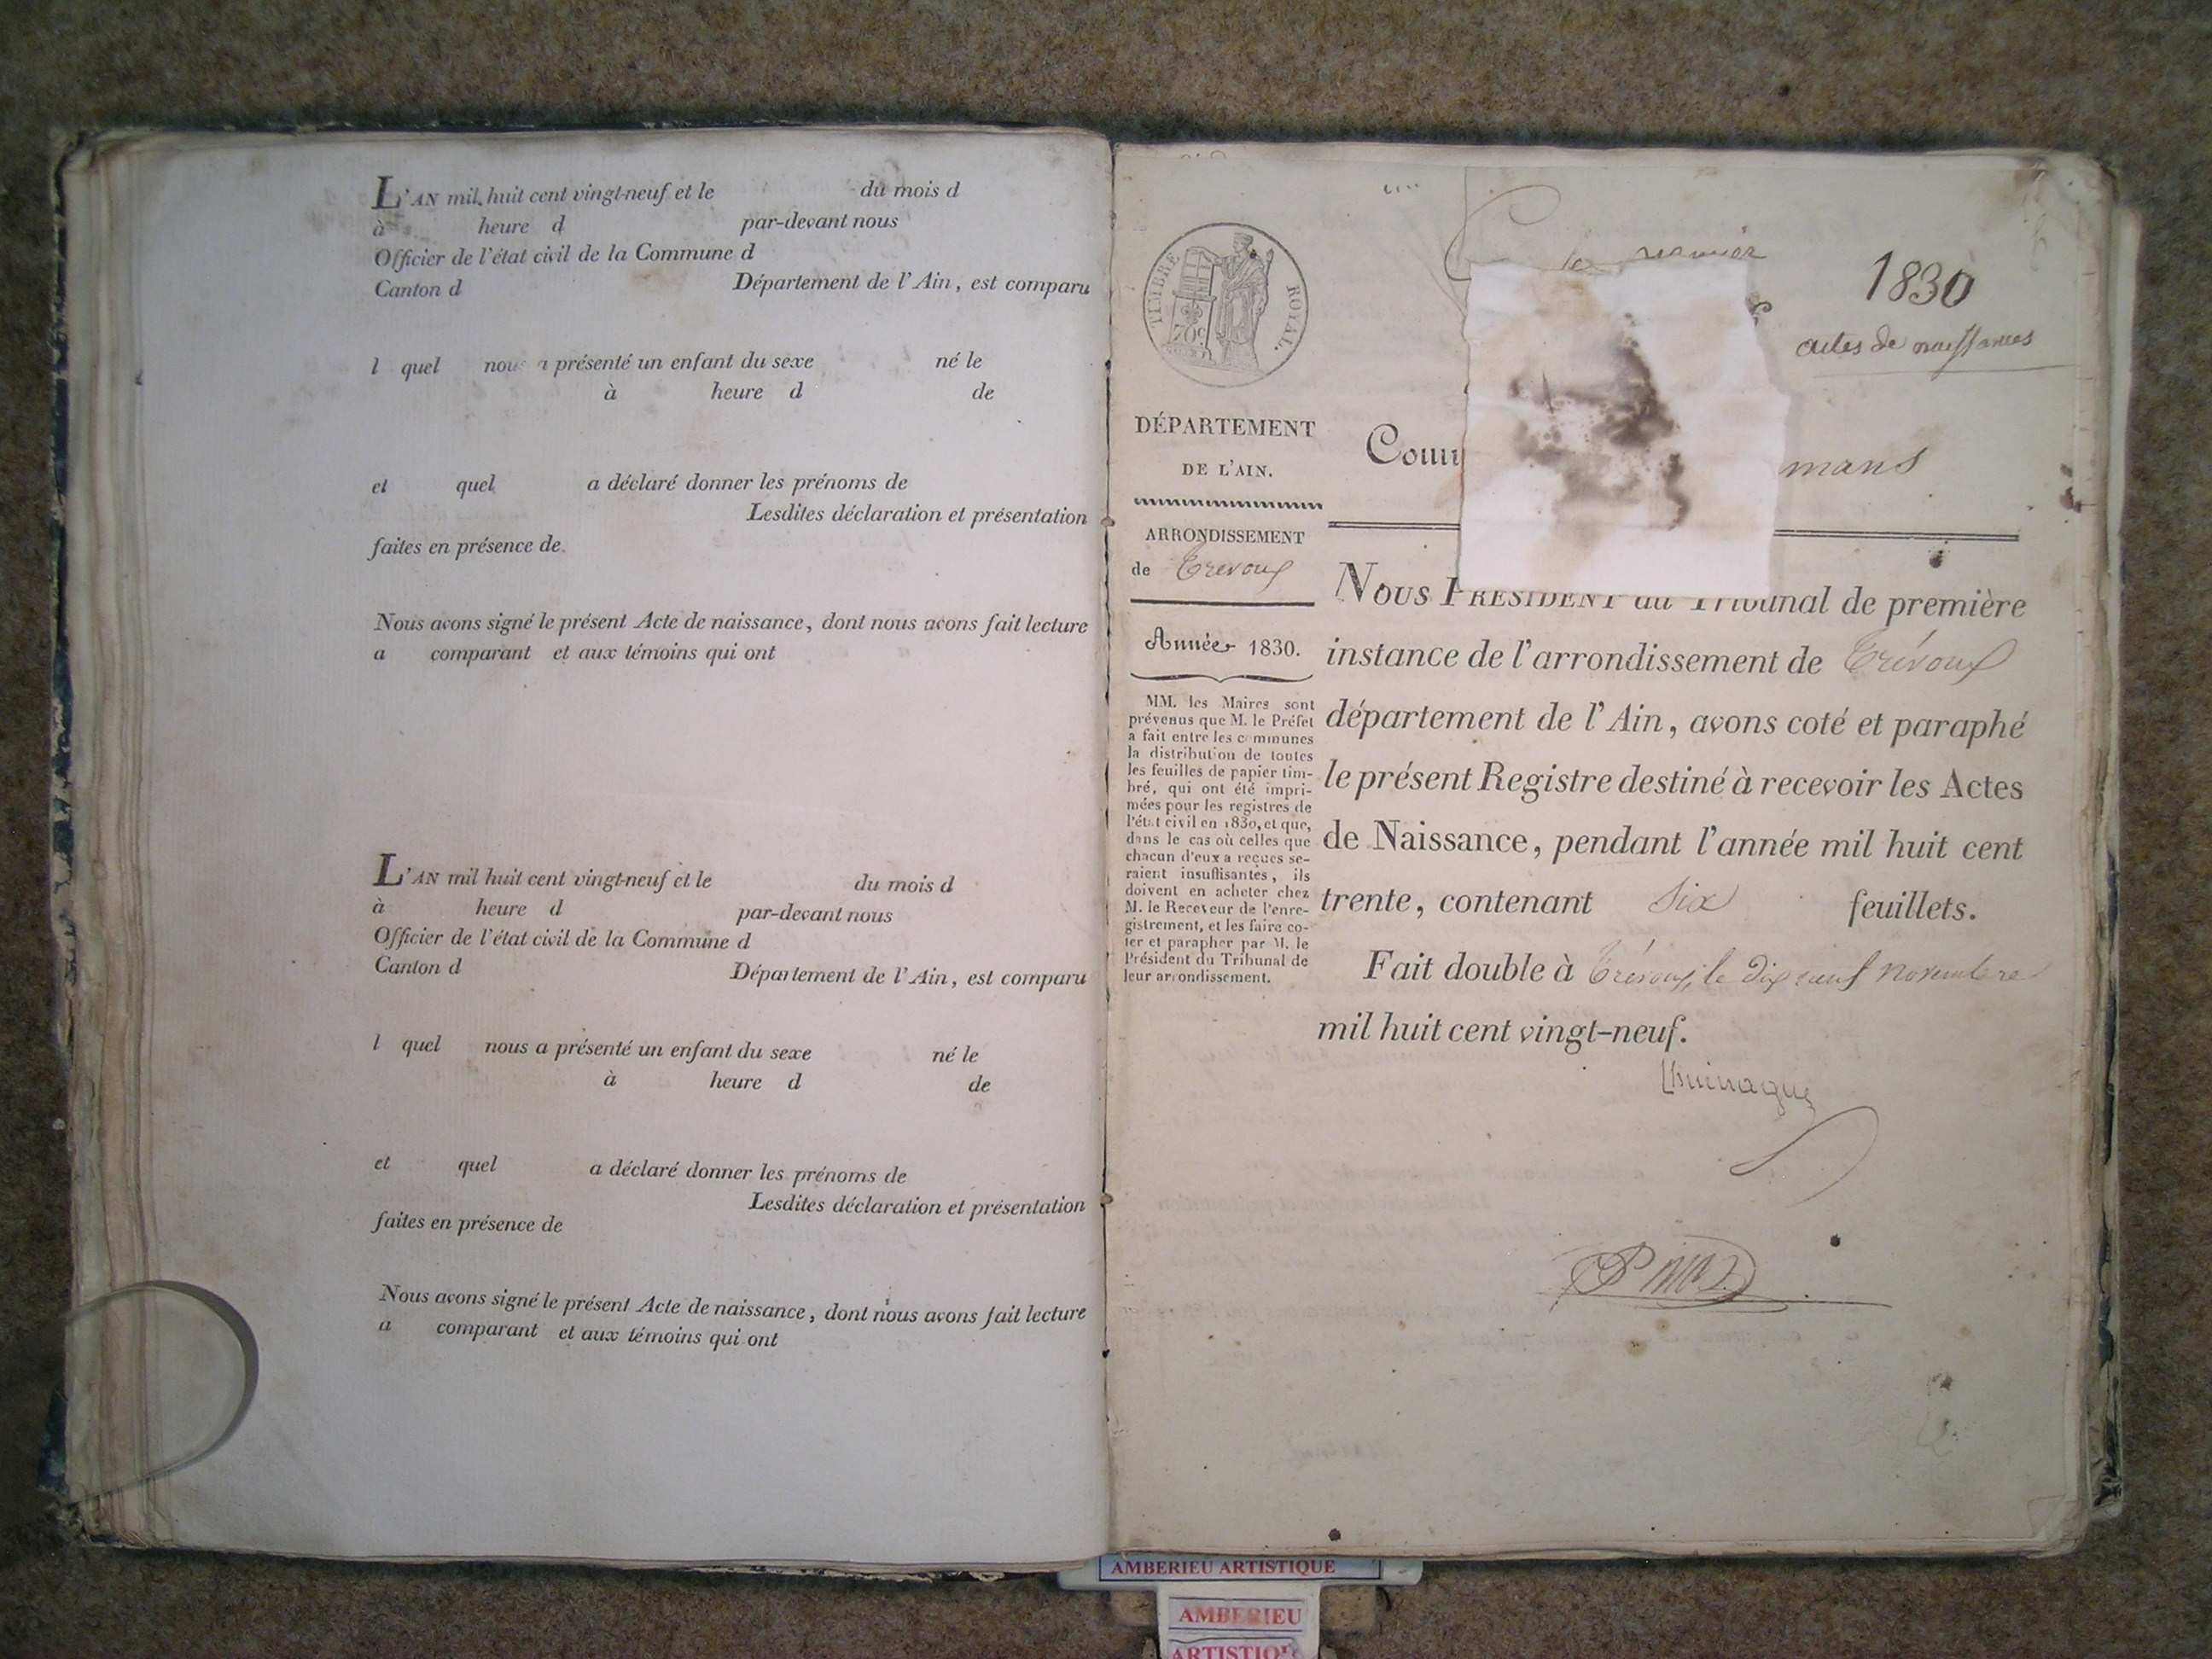 L'AN mil huit cent vingt-neuf et le du mois d
à heure d par-devant nous
Officier de l'état civil de la Commune d
Canton d Département de l'Ain, est comparu
l quel nous a présenté un enfant du sexe né le
à heure d de
et quel a déclaré donner les prénoms de
Lesdites déclaration et présentation
faites en présence de
Nous avons signé le présent Acte de naissance, dont nous avons fait lecture
a comparant et aux témoins qui ont
L'AN mil huit cent vingt-neuf et le du mois d
à heure d par-devant nous
Officier de l'état civil de la Commune d
Canton d Département de l'Ain, est comparu
l quel nous a présenté un enfant du sexe né le
à heure d de
et quel a déclaré donner les prénoms de
Lesdites déclaration et présentation
faites en présence de
Nous avons signé le présent Acte de naissance, dont nous avons fait lecture
a comparant et aux témoins qui ont
TIMBRE ROYAL.
70c
DÉPARTEMENT
DE L'AIN.
ARRONDISSEMENT
de Trévoux
Année 1830.
MM. les Maires sont
prévenus que M. le Préfet
a fait entre les communes
la distribution de toutes
les feuilles de papier tim-
bré, qui ont été impri-
mées pour les registres de
l'état civil en 1830, et que,
dans le cas où celles que
chacun d'eux a reçues se-
raient insuffisantes, ils
doivent en acheter chez
M. le Receveur de l'enre-
gistrement, et les faire co-
ter et parapher par M. le
Président du Tribunal de
leur arrondissement.
premier
1830
actes de naissances
Comm mans
NOUS PRÉSIDENT du Tribunal de première
instance de l'arrondissement de Trévoux
département de l'Ain, avons coté et paraphé
le présent Registre destiné à recevoir les Actes
de Naissance, pendant l'année mil huit cent
trente, contenant six feuillets.
Fait double à Trévoux, le dix neuf novembre
mil huit cent vingt-neuf.
AMBERIEU ARTISTIQUE
AMBERIEU
ARTISTIQUE